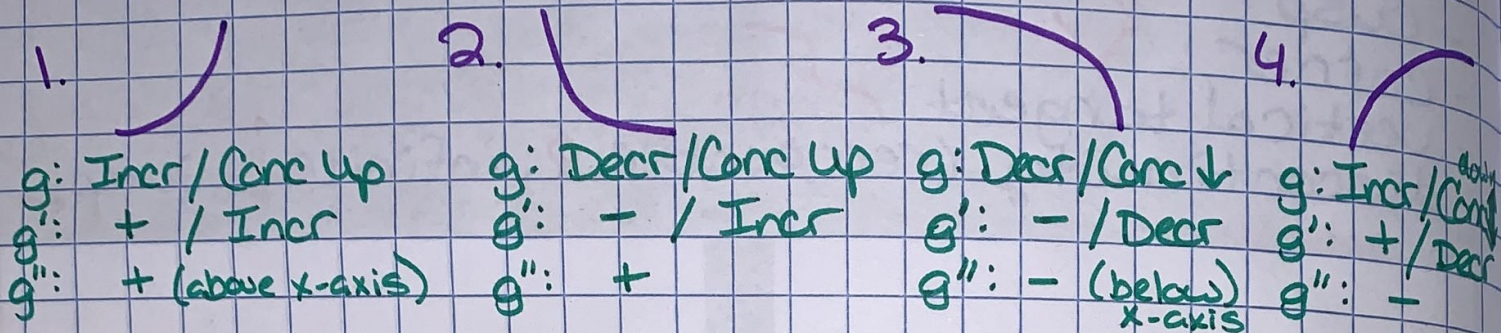 1.
g: Incr/Conc Up
g': + / Incr
g": + (above x-axis)
2.
g: Decr/Conc Up
g': - / Incr
g": +
3.
g: Decr/Conc ↓
g': - / Decr
g": - (below) x-axis
4.
g: Incr/Conc down ↓
g': + / Decr
g": -